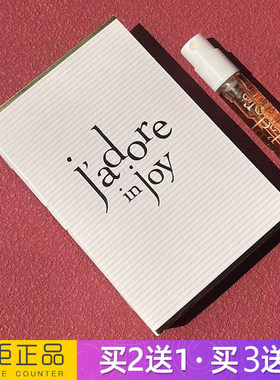 j'adore
in
joy
正品
COUNTER
买2送1·买3送